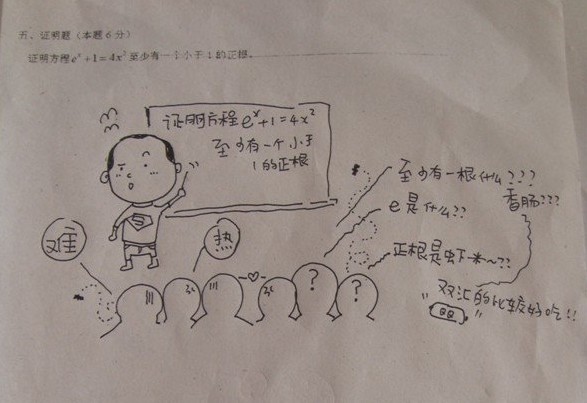 五、证明题（本题 6 分）
证明方程 eˣ + 1 = 4x² 至少有一个小于 1 的正根。
证明方程 eˣ+1=4x²
至少有一个小于
1的正根
至少有一根什么???
香肠???
e是什么??
正根是虾米~??
"双汇的比较好吃!!"
QQ
难
热
S
?
?